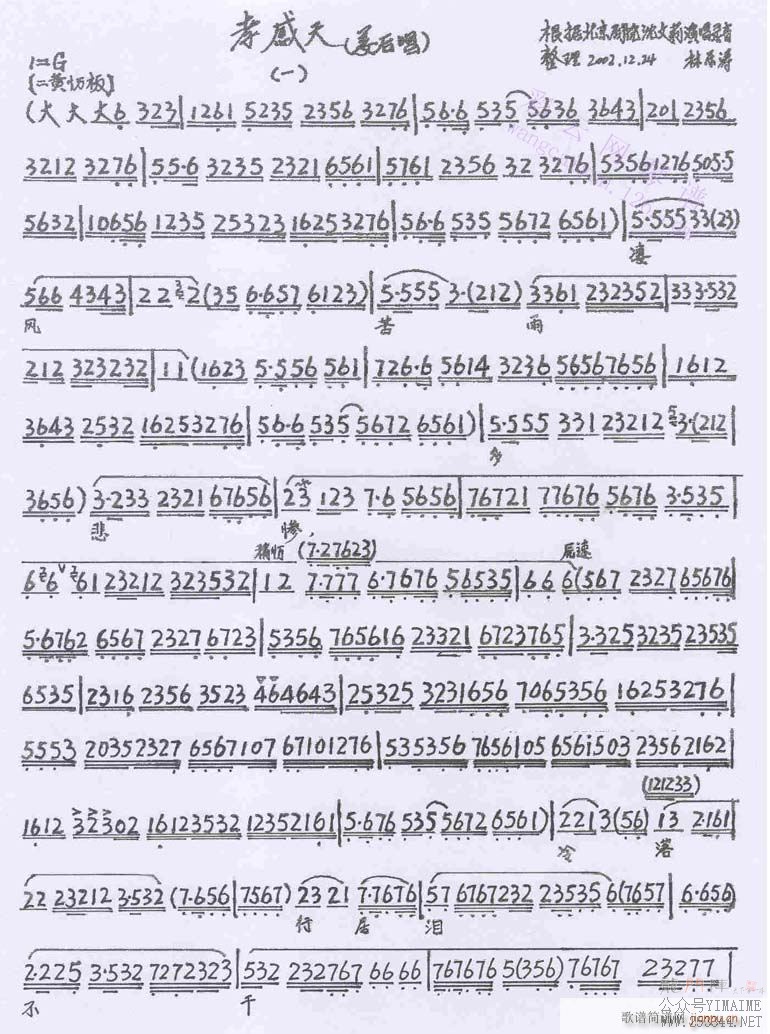 孝感天(姜后唱)
根据北京剧院沈文莉演唱录音
1=G
(一)
整理 2002.12.24 林
【二黄慢板】
(大 大 大6 323|1261 5235 2356 3276|56·6 535 5636 3643|201 2356
3212 3276|55·6 3235 2321 6561|5761 2356 32 3276|53561276 505·5
5632|10656 1235 25323 16253276|56·6 535 5672 6561)|5·555 33(23)
凄
566 4343|22 2(35 6·657 6123)|5·555 3·(212) 3361 232352|333·532
风 苦 雨
212 323232|11(1623 5·556 561|726·6 5614 3236 56567656|1612
3643 2532 16253276|56·6 535 5672 6561)|5·555 331 23212 3·(212|
多
3656) 3·233 2321 67656|23 123 7·6 5656|76721 77676 5676 3·535|
悲 惨,
稍快 (7·27623) 原速
6 6 61 23212 323532|12 7·777 6·7676 56535|66 6(567 2327 65676|
5·6762 6567 2327 6723|5356 765616 23321 6723765|3·325323523535
6535|2316 2356 3523 464643|25325 3231656 7065356 16253276|
5553 20352327 6567107 67101276|535356 7656105 6561503 23562162|
(121233)
1612 323302 16123532 12352161|5·676 535 5672 6561)|2213(56) 13 2·161|
冷 落
22 23212 3·532 (7·656|7567) 23 21 7·7676|57 6767232 23535 6(7657|6·656)
行 居 泪
2·225 3·532 7272323|532 232767 66 66|767676 5(356) 76767 23277|
不 干
公众号YIMAIME
歌谱简谱网